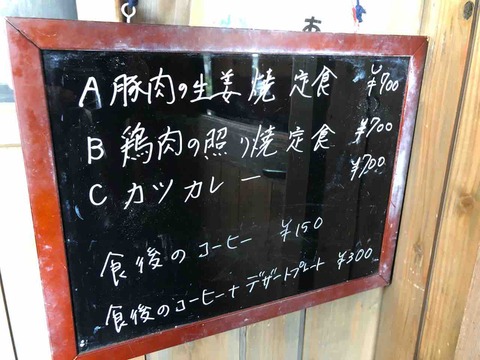 A 豚肉の生姜焼定食 ¥700
B 鶏肉の照り焼定食 ¥700
C カツカレー ¥700
食後のコーヒー ¥150
食後のコーヒー+デザートプレート ¥300